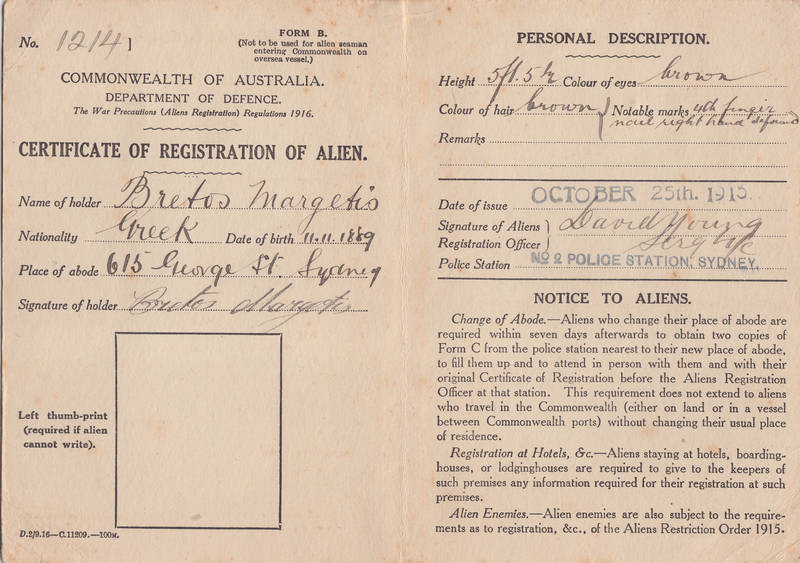 No. 1214]
FORM B.
(Not to be used for alien seaman
entering Commonwealth on
oversea vessel.)
COMMONWEALTH OF AUSTRALIA.
DEPARTMENT OF DEFENCE.
The War Precautions (Aliens Registration) Regulations 1916.
CERTIFICATE OF REGISTRATION OF ALIEN.
Name of holder Bretos Margetis
Nationality Greek Date of birth 11.11.1889
Place of abode 615 George St. Sydney
Signature of holder Bretos Margetis
Left thumb-print
(required if alien
cannot write).
D.2/9.16—C.11209.—100M.
PERSONAL DESCRIPTION.
Height 5ft. 5½ Colour of eyes brown
Colour of hair brown Notable marks 4th finger
nail right hand deformed
Remarks
Date of issue OCTOBER 25th. 1916.
Signature of Aliens David Young
Registration Officer Sergt
Police Station No 2 POLICE STATION, SYDNEY.
NOTICE TO ALIENS.
Change of Abode.—Aliens who change their place of abode are
required within seven days afterwards to obtain two copies of
Form C from the police station nearest to their new place of abode,
to fill them up and to attend in person with them and with their
original Certificate of Registration before the Aliens Registration
Officer at that station. This requirement does not extend to aliens
who travel in the Commonwealth (either on land or in a vessel
between Commonwealth ports) without changing their usual place
of residence.
Registration at Hotels, &c.—Aliens staying at hotels, boarding-
houses, or lodginghouses are required to give to the keepers of
such premises any information required for their registration at such
premises.
Alien Enemies.—Alien enemies are also subject to the require-
ments as to registration, &c., of the Aliens Restriction Order 1915.